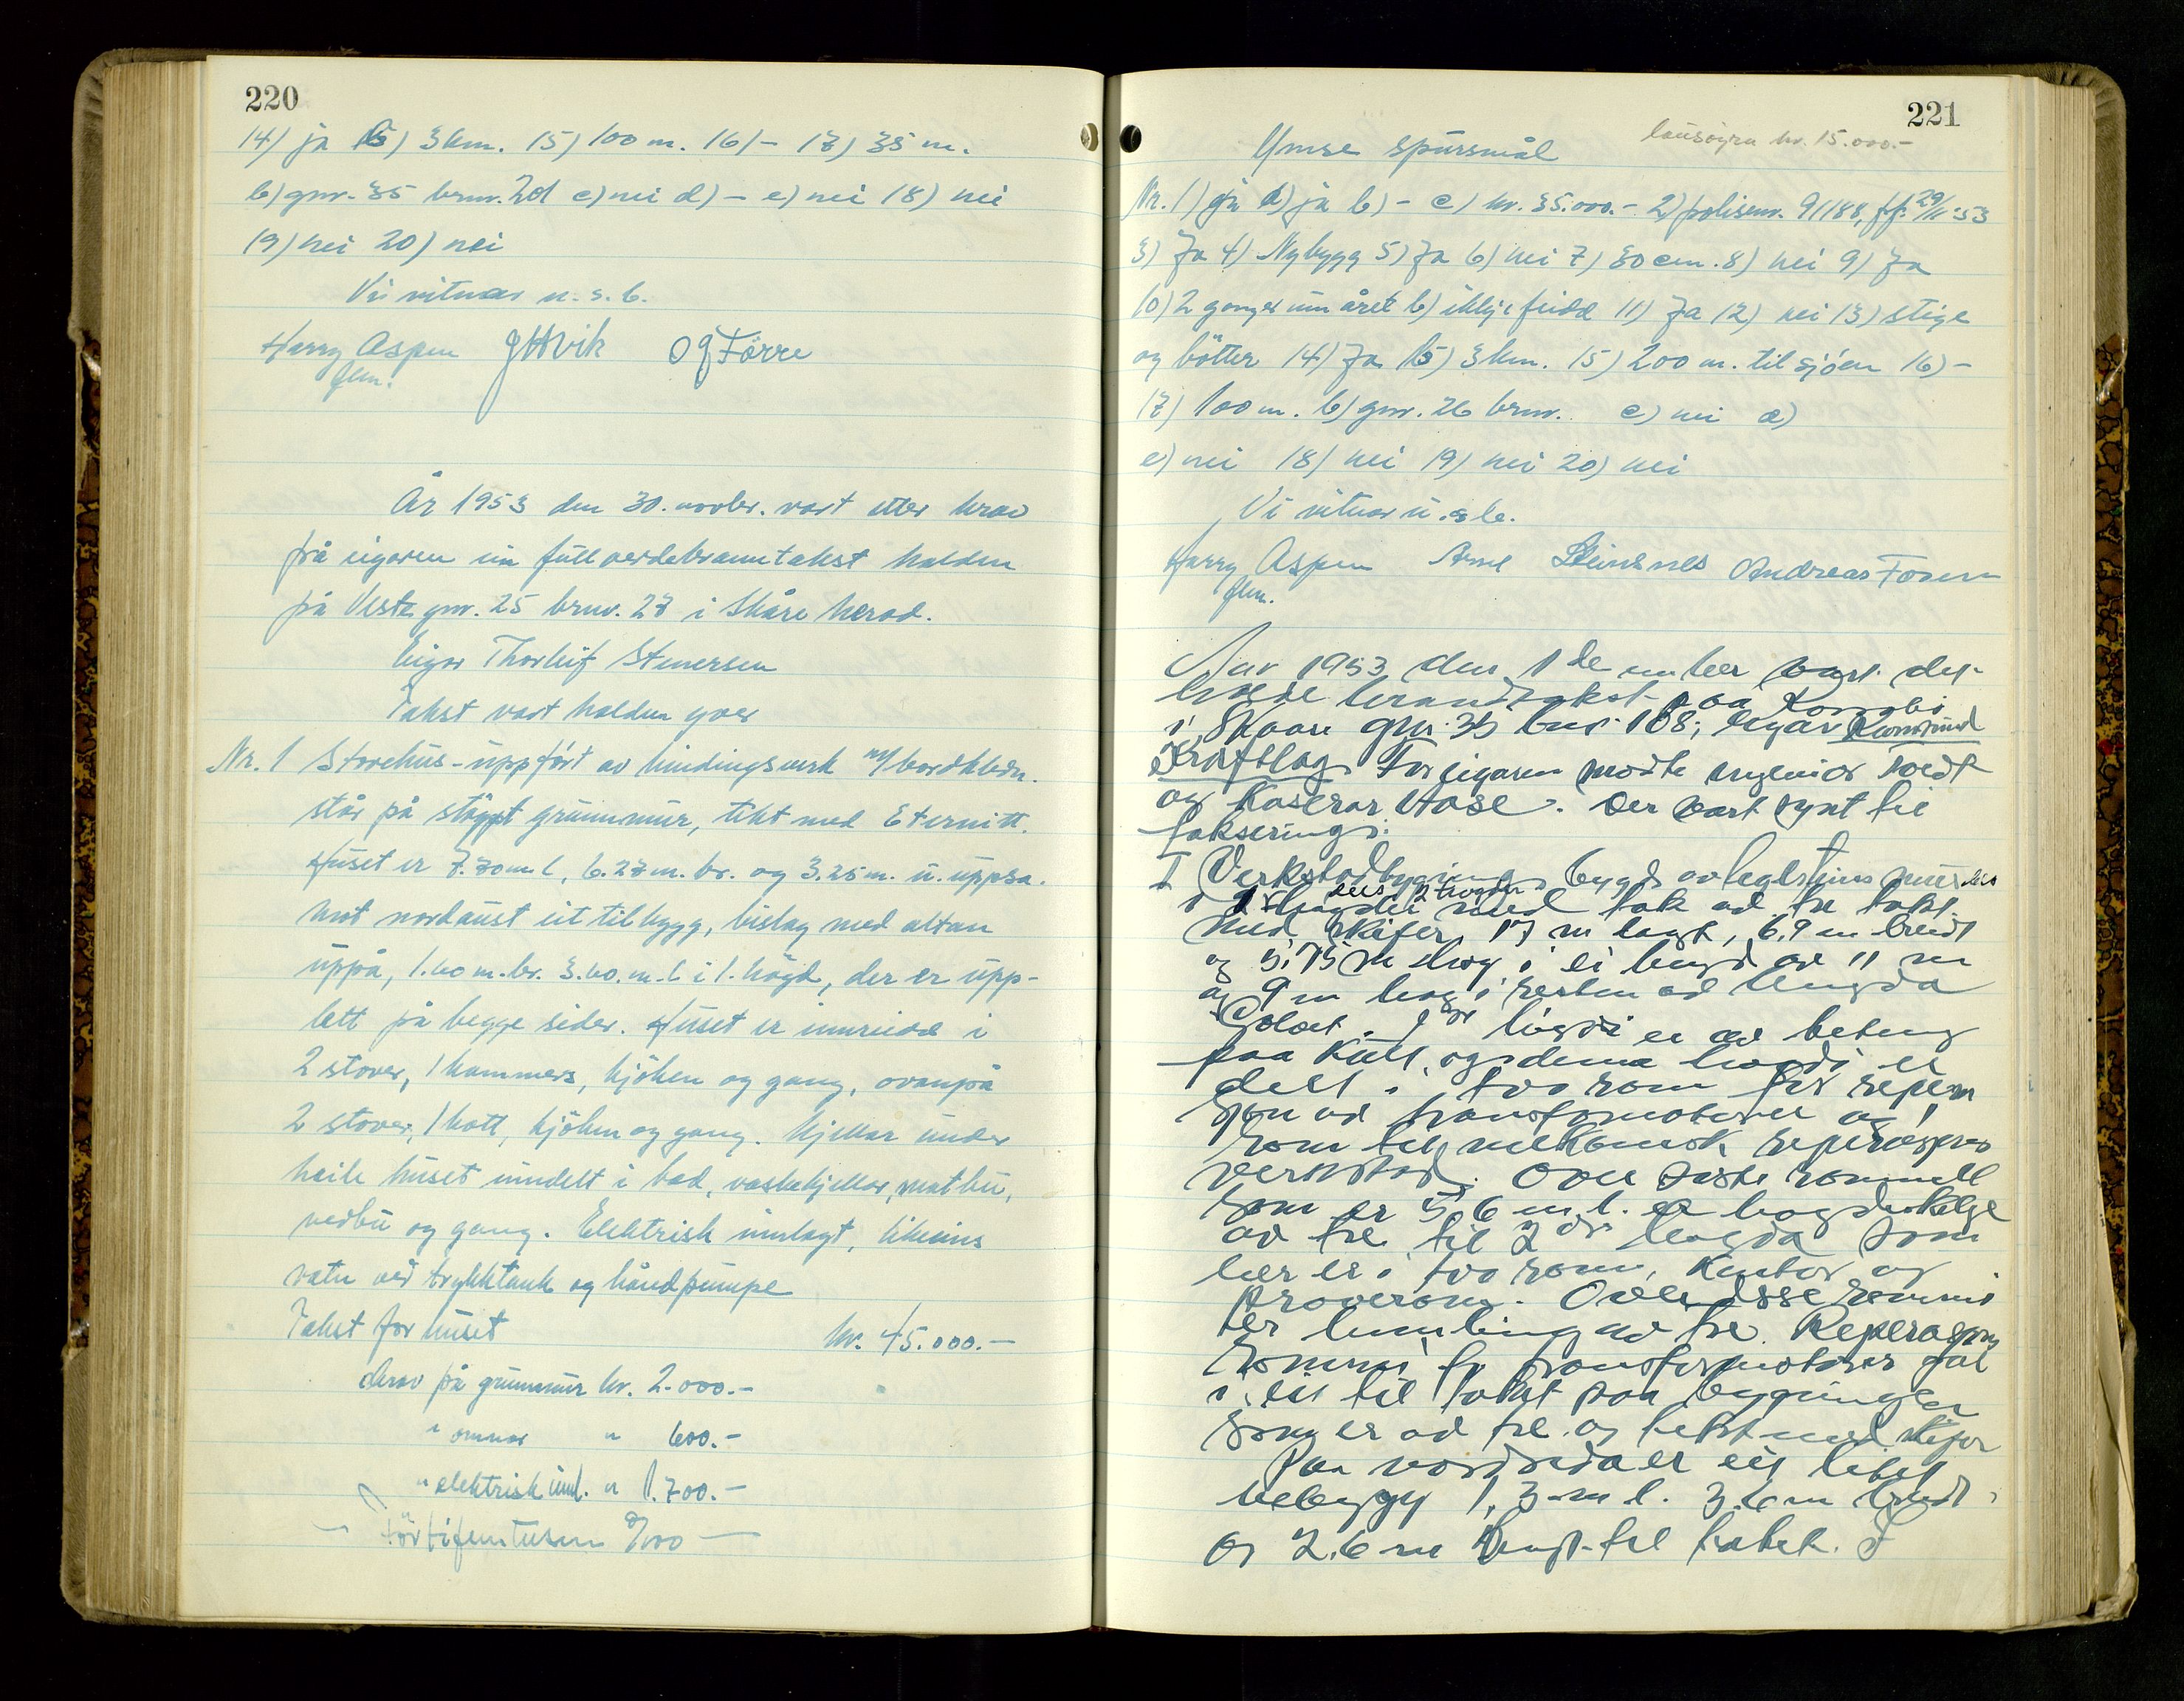 220
14) ja b) 3 km. 15) 100 m. 16) - 17) 35 m.
b) gnr. 35 brnr. 201 c) nei d) - e) nei 18) nei
19) nei 20) nei
Vi vitnar u. s. b.
Harry Aspen J H Vik O G Førre
flm.
År 1953 den 30. novbr. vart etter krav
frå eigaren ein fullverdebranntakst halden
på Vesta gnr. 25 brnr. 27 i Skåre herad.
Eigar Thorleif Stenersen
Takst vart halden yver
Nr. 1 Stovehus - uppført av bindingsverk m/bordkledn.
står på støypt grunnmur, tekt med Eternitt.
Huset er 7.70 m l, 6.27 m. br. og 3.25 m. u. uppsa.
Mot nordaust eit tilbygg, bislag med altan
uppå, 1.60 m. br. 3.60. m. l i 1. høgd, der er upp-
lett på begge sider. Huset er innreidd i
2 stover, 1 kammers, kjøken og gang, ovanpå
2 stover, 1 kott, kjøken og gang. Kjellar under
heile huset inndelt i bad, vaskekjellar, matbu,
vedbu og gang. Elektrisk innlagt, likeins
vatn ved trykktank og håndpumpe
Takst for huset kr. 45.000.-
derav på grunnmur kr. 2.000.-
" omnar " 600.-
" elektrisk innl. " 1.700.-
- Førtifemtusen 0/100 -
221
lausøyra kr. 15.000.-
Ymse spursmål
Nr. 1) ja a) ja b) - c) kr. 35.000.- 2) polisenr. 91188, ff. 29/11-53
3) Ja 4) Nybygg 5) Ja 6) nei 7) 30 cm. 8) nei 9) Ja
10) 2 gonger um året b) ikkje feidd 11) Ja 12) nei 13) stige
og bøtter 14) Ja b) 3 km. 15) 200 m. til sjøen 16) -
17) 100 m. b) gnr. 26 brnr. c) nei d)
e) nei 18) nei 19) nei 20) nei
Vi vitnar u. s b.
Harry Aspen Arne Steinsnes Andreas Fosen
flm.
Aar 1953 den 1 desember vart det
brandtakst paa
i Skaare gnr 35 bnr 108; eigar Karmsund
Kraftlag. For eigaren møtte ingeniør Tvedt
og Kaserar Hose. Der vart synt til
taksering:
I Verkstadbygning bygd av teglsteins mur
i 1 høgdi dels 2 høgder med tak av tre tekt
med skifer 17 m langt, 6,9 m breidt
og 5,75 m høg i ei lengd av 11 m
og 9 m høg i resten av lengda
Golvet i 1ste høgdi er av betong
paa Kult, og denna høgdi er
delt i tvo rom for repera
sjon av transformatorer og 1
rom til mekanisk reperasjons
verkstad. Over siste rommet
som er 5,6 m l. er høgdeskilje
av tre til 2dre høgda som
her er i tvo rom, Kontor og
prøverom. Over disse rommi
er himling av tre. Reperasjons
rommi for transformatorer gaar
i eit til taket paa bygningen
som er av tre og tekt med skifer
Paa nordsida er eit lite
tilbygg 1,3 m l. 3,6 m breidt
og 2,6 m høgt til taket. I